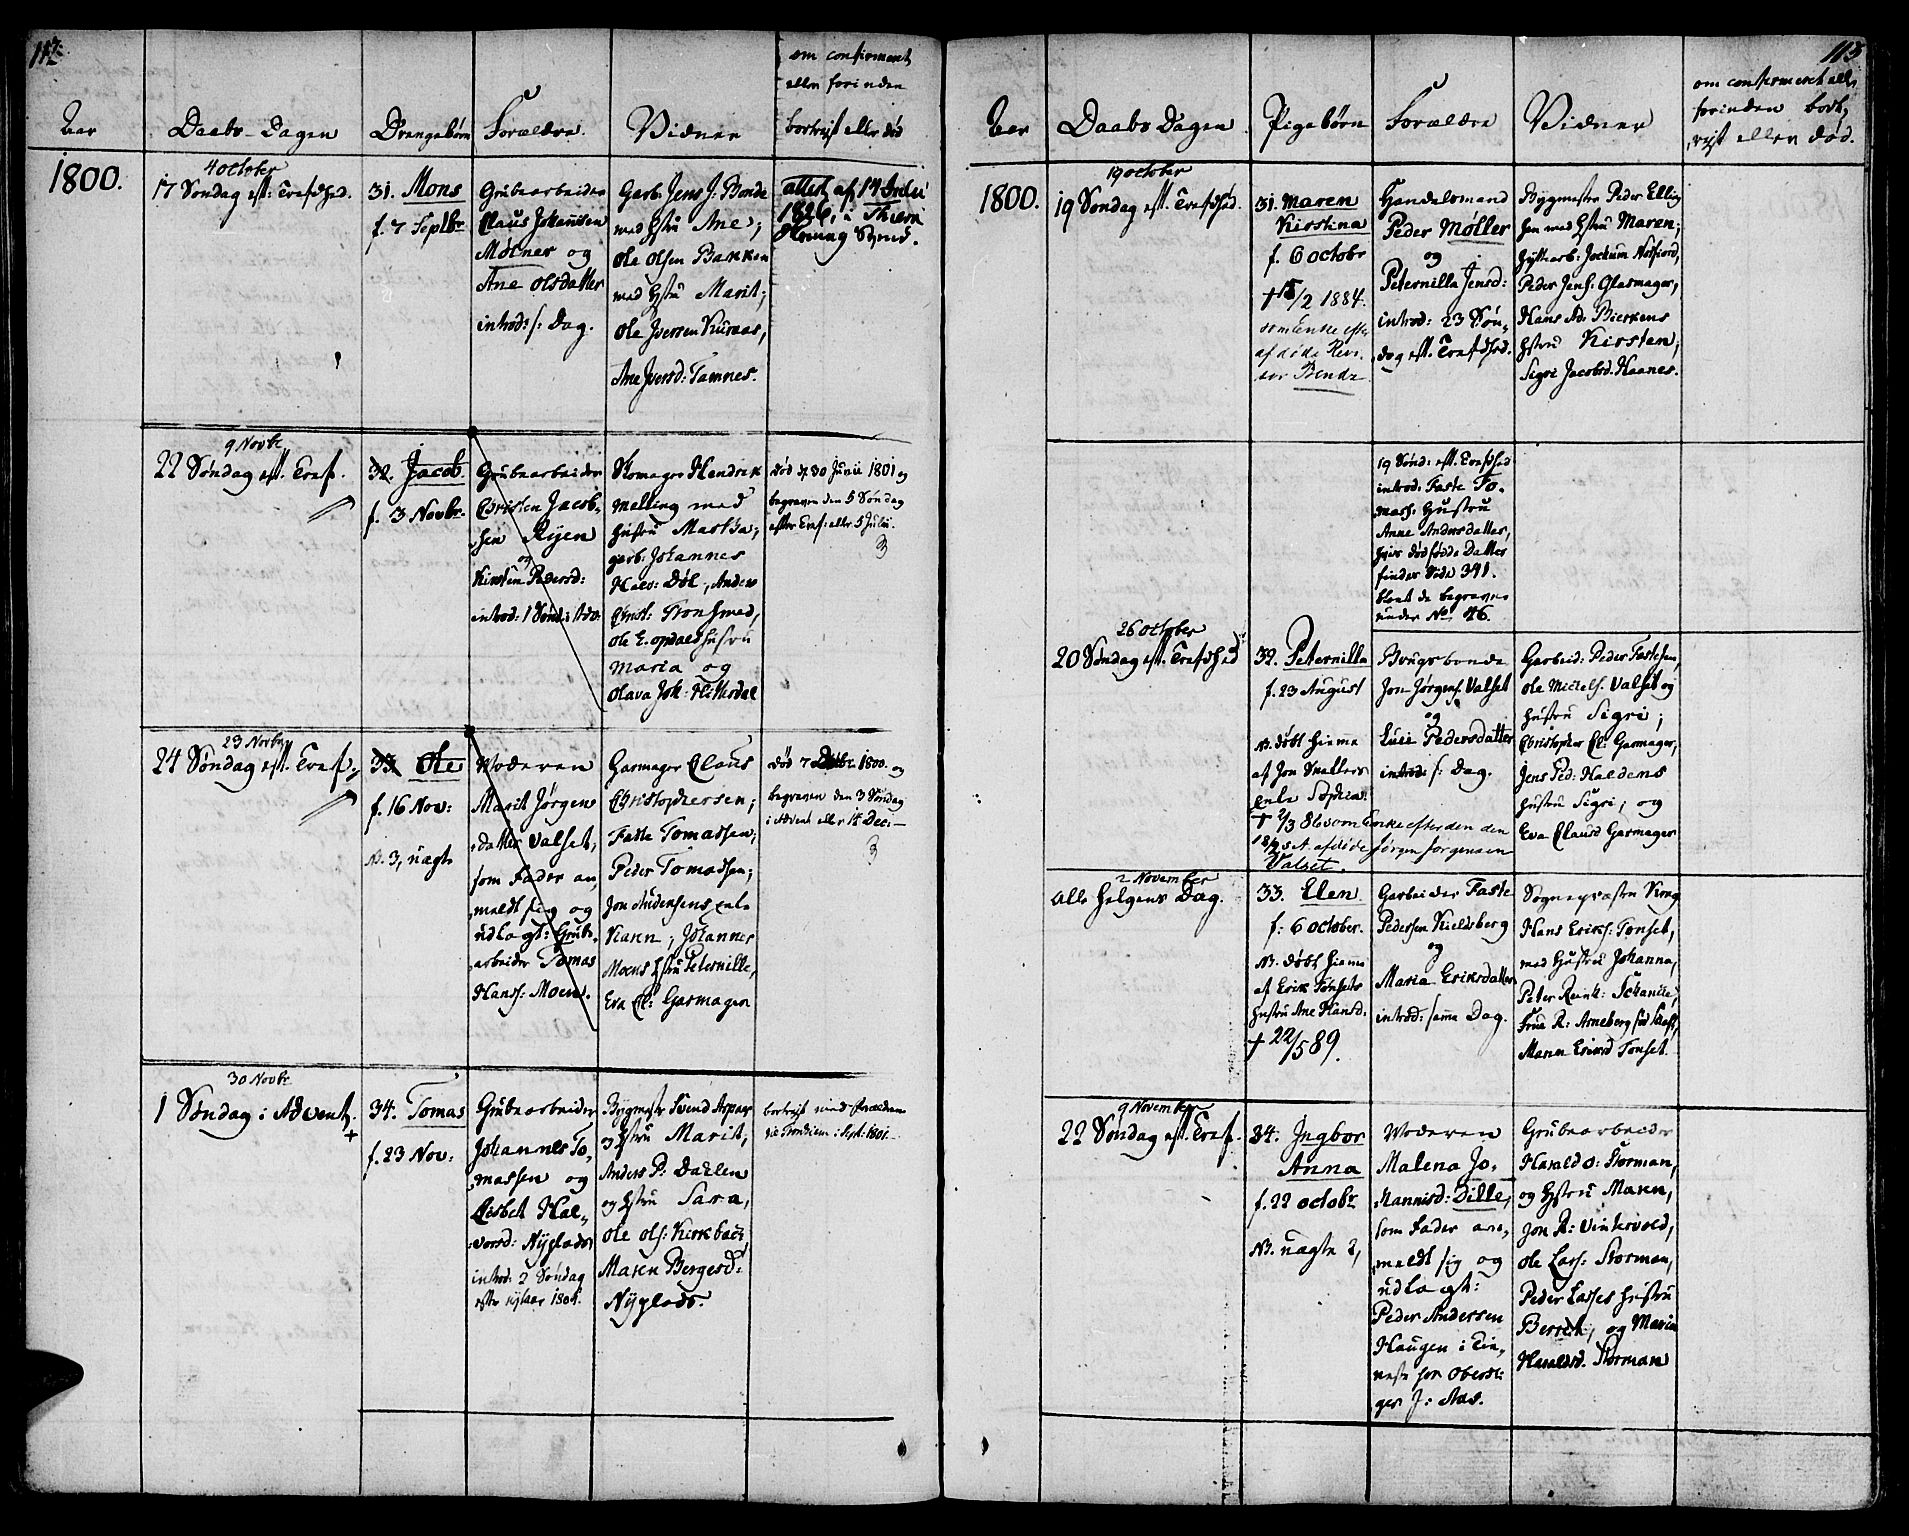 112.
Aar
Daabs-Dagen
Drengebørn
Forældre.
Vidner
om confirmeret
eller forinden
bortrejst eller død
1800.
4 October
17 Søndag eft: Trefdhed.
31. Mons
f. 7 Septbr
Grubearbeider
Claus Johannsen
Mølner og
Ane Olsdatter
introd: s: Dag.
Garb. Jens J. Bonde
med Hstru Ane;
Ole Olsen Bakken
med Hstru Marit;
Ole Iversen Kuraas,
Ane Iversd: Tamnes.
attest af 14
1826, i
9 Novbr
22 Søndag eft. Tref.
32. Jacob
f. 3 Novbr.
Grubearbeider
Christen Jacob-
sen Ryen
og
Kirsten Pedersd:
introd: 1 Sønd: i Adv.
Skomager Hendrik
Melling med
Hustru Martha;
garb: Johannes
Halv: Døl, Anders
Christ: Tronsmed,
Ole E. Opdals Hustru
Maria og
Olava Joh: Hitterdal
død d. 30 Junii 1801 og
begraven den 5 Søndag
efter Tref: eller 5 Julii.
3
23 Novbr
24 Søndag eft. Tref.
33. Ole
f. 16 Nov:
N. 3, uægt
Moderen
Marit Jørgen
datter Valset,
som Fader an,
meldt sig og
udlagt: Grub,
arbeider Tomas
Hans: Moen.
Garmager Claus
Christophersen;
Faste Tomassen;
Peder Tomassen;
Jon Audensens enke
Karen, Johannes
Moens Hstru Peternille,
Eva Cl: Garmager
død 7 Decbr 1800. og
begraven den 3 Søndag
i Advent eller 14 Dec:
3
30 Novbr
1 Søndag i Advent.
34. Tomas
f. 23 Nov:
Grubearbeider
Johannes To,
massen og
Lisbet Hal,
vorsd: Nyplads
introd: 2 Søndag
efter nytaar 1801.
Bygmestr Svend Aspaas
og Hstru Marit,
Anders P: Dahlen
og Hstru Sara,
Ole Ols: Kirkbak,
Maren Bergersd:
Nyplads.
bortrejst med forældrene
til Trondiem i Sept: 1801.
113
Aar
Daabs Dagen
Pigebørn
Forældre
Vidner
om confirmeret eller
forinden bort,
rejst eller død.
1800.
19 october
19 Søndag eft. Trefdhed.
31. Maren
Kirstina
f. 6 octobr
† 15/2 1884.
som Enke efter
afdøde Revi-
sor Bende
Handelsmand
Peder Møller
og
Peternilla Jensd:
introd: 23 Søn,
dag eft. Trefdhed.
Bygmester Peder Elling
sen med Hstru Maren;
Hyttearb: Jochum Nosfiord,
Peder Jens: Glasmager,
Hans Ad: Bierkens
Hstru Kirsten;
Sigri Jacobsd. Haanes.
19 Sønd: eft. Trefdhed
introd: Faste To,
mass: Hustru
Anne Andersdatter,
hvis dødfødde Datter
findes Side 341.
blant de begravne
under No. 46.
26 october
20 Søndag eft. Trefdhed
32. Peternilla
f. 23 August
N. døbt hiemme
af Jon Smelters
enke Sophia.
† 2/3 86 som Enke efter den den
18/2 s.A. afdøde Jørgen Jorgensen
Valset.
Brugsbonde
Jon Jørgens. Valset
og
Luci Pedersdatter
introd: s: Dag.
Garbeid: Peder Fastesen,
Ole Michels. Valset og
Hustru Sigri;
Christopher Cl: Garmager,
Jens Ped: Haldens
Hustru Sigri; og
Eva Clausd Garmager
2 November
Alle Helgens Dag.
33. Elen
f: 6 october.
N. døbt hiemme
af Erik Tønsets
Hustru Ane Hansd:
† 22/5 89.
Garbeider Faste
Pedersen Kieldsberg
og
Maria Eriksdatter
introd: samme Dag.
Sognepræsten Krog
Hans Eriks: Tønset,
med Hustru Johanna,
Peter Reink: Schancke,
Frue R: Arneberg fød Skaft,
Maren Eriksd Tønset.
9 November
22 Søndag eft. Tref.
34. Ingbor
Anna
f. 22 octobr
N. uægte 2,
Moderen
Malena Jo,
hannisd: Dille,
som Fader an,
meldt sig og
udlagt:
Peder Andersen
Haugen i Tin,
neste hos Oberst:
ger J: Aas.
Grubearbeider
Harald O: Storman,
og Hstru Maren,
Jon R: Vintervold,
Ole Lars: Storman,
Peder Lasses Hustru
Berret, og Maria
Haraldsd. Storman